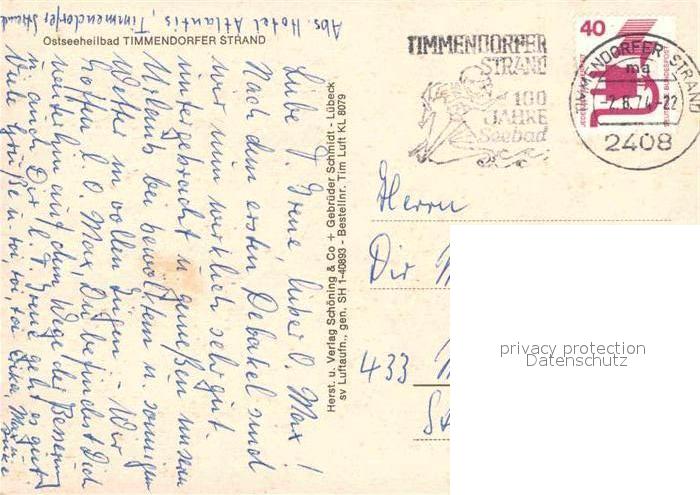 Abs. Hotel Atlantis, Timmendorfer Strand
Ostseeheilbad TIMMENDORFER STRAND
Liebe T. Irene, lieber O. Max!
Nach dem ersten Debakel sind
wir nun wirklich sehr gut
untergebracht u. genießen unseren
Urlaub bei bewölktem u. sonnigem
Wetter in vollen Zügen. Wir
hoffen, l. O. Max, Du befindest Dich
weiterhin auf dem Wege der Besserung
u. auch Dir l. T. Irene geht es gut.
Viele Grüße u. toi, toi, toi
Herst. u. Verlag Schöning & Co + Gebrüder Schmidt - Lübeck
sv Luftaufn., gen. SH 1-40893 - Bestellnr. Tim Luft KL 8079
TIMMENDORFER
STRAND
100
JAHRE
Seebad
40
DEUTSCHE BUNDESPOST
TIMMENDORFER STRAND
ma
-2.8.74-22
2408
Herrn
Dir
433
privacy protection
Datenschutz